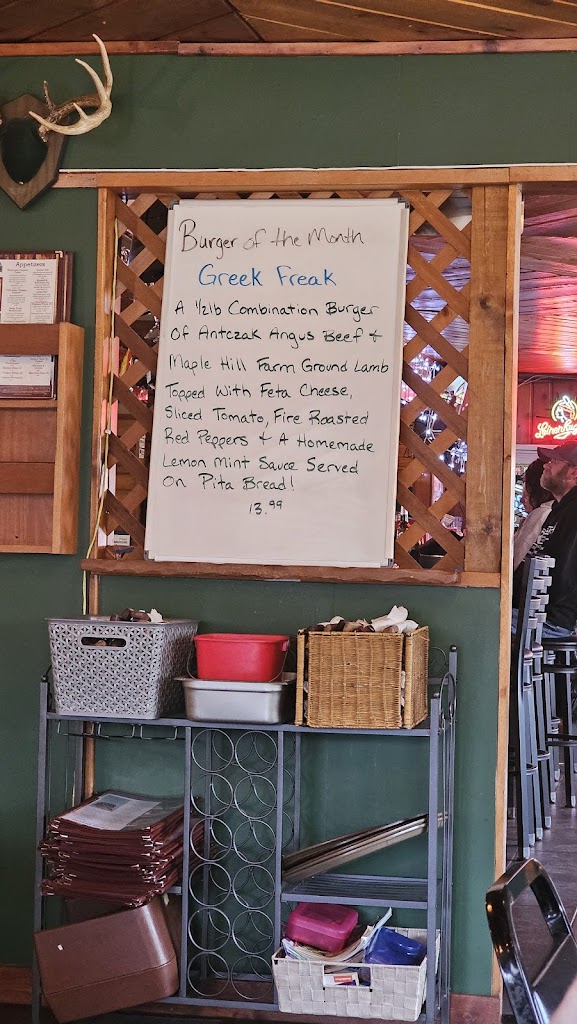 Burger of the Month
Greek Freak
A 1/2lb Combination Burger
Of Antczak Angus Beef +
Maple Hill Farm Ground Lamb
Topped With Feta Cheese,
Sliced Tomato, Fire Roasted
Red Peppers + A Homemade
Lemon Mint Sauce Served
On Pita Bread!
13.99
Appetzers